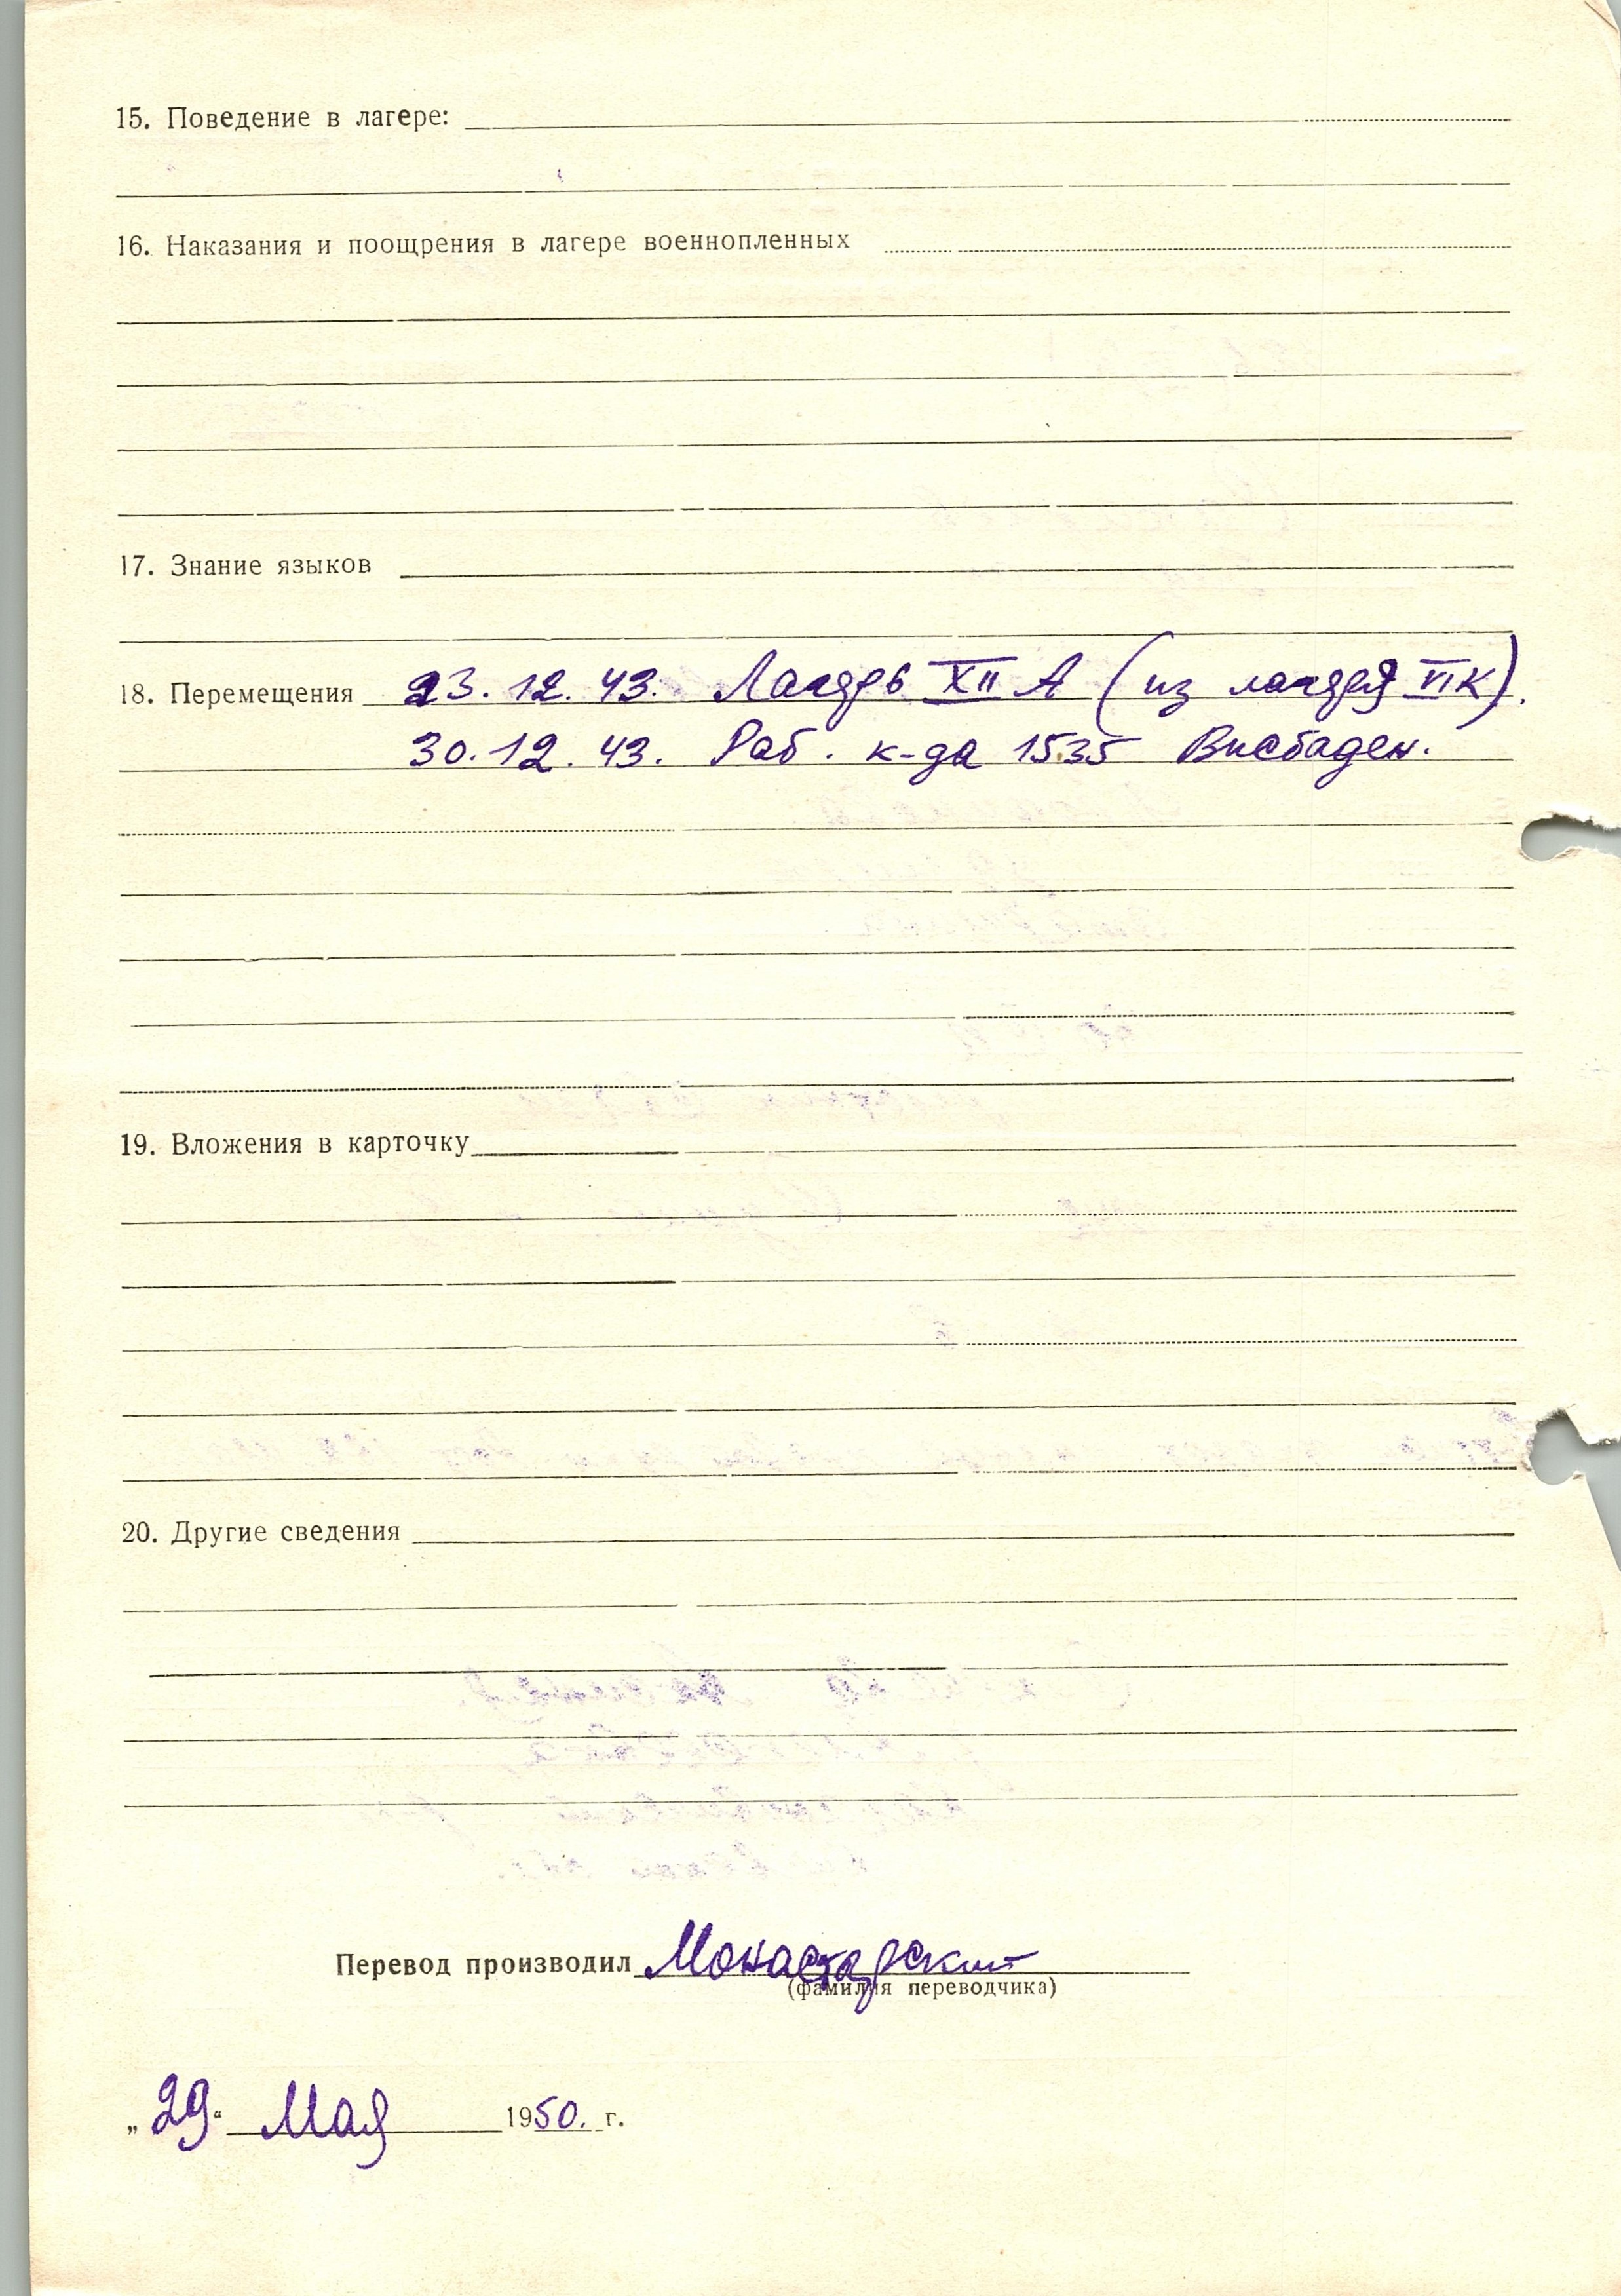 15. Поведение в лагере:
16. Наказания и поощрения в лагере военнопленных
17. Знание языков
18. Перемещения 23.12.43. Лагерь XII А (из лагеря VI К).
30.12.43. Раб. к-да 1535 Висбаден.
19. Вложения в карточку
20. Другие сведения
Перевод производил Монастарский
(фамилия переводчика)
„29“ Мая 1950. г.